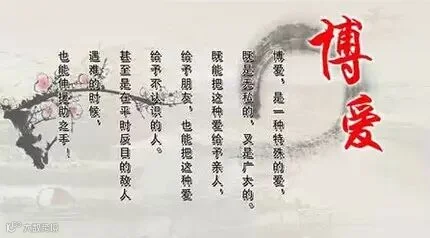 博爱
博爱，是一种特殊的爱，
既是无私的，又是广大的。
既能把这种爱给予亲人，
给予朋友，也能把这种爱
给予不认识的人。
甚至是在平时反目的敌人
遇难的时候，
也能伸援助之手！